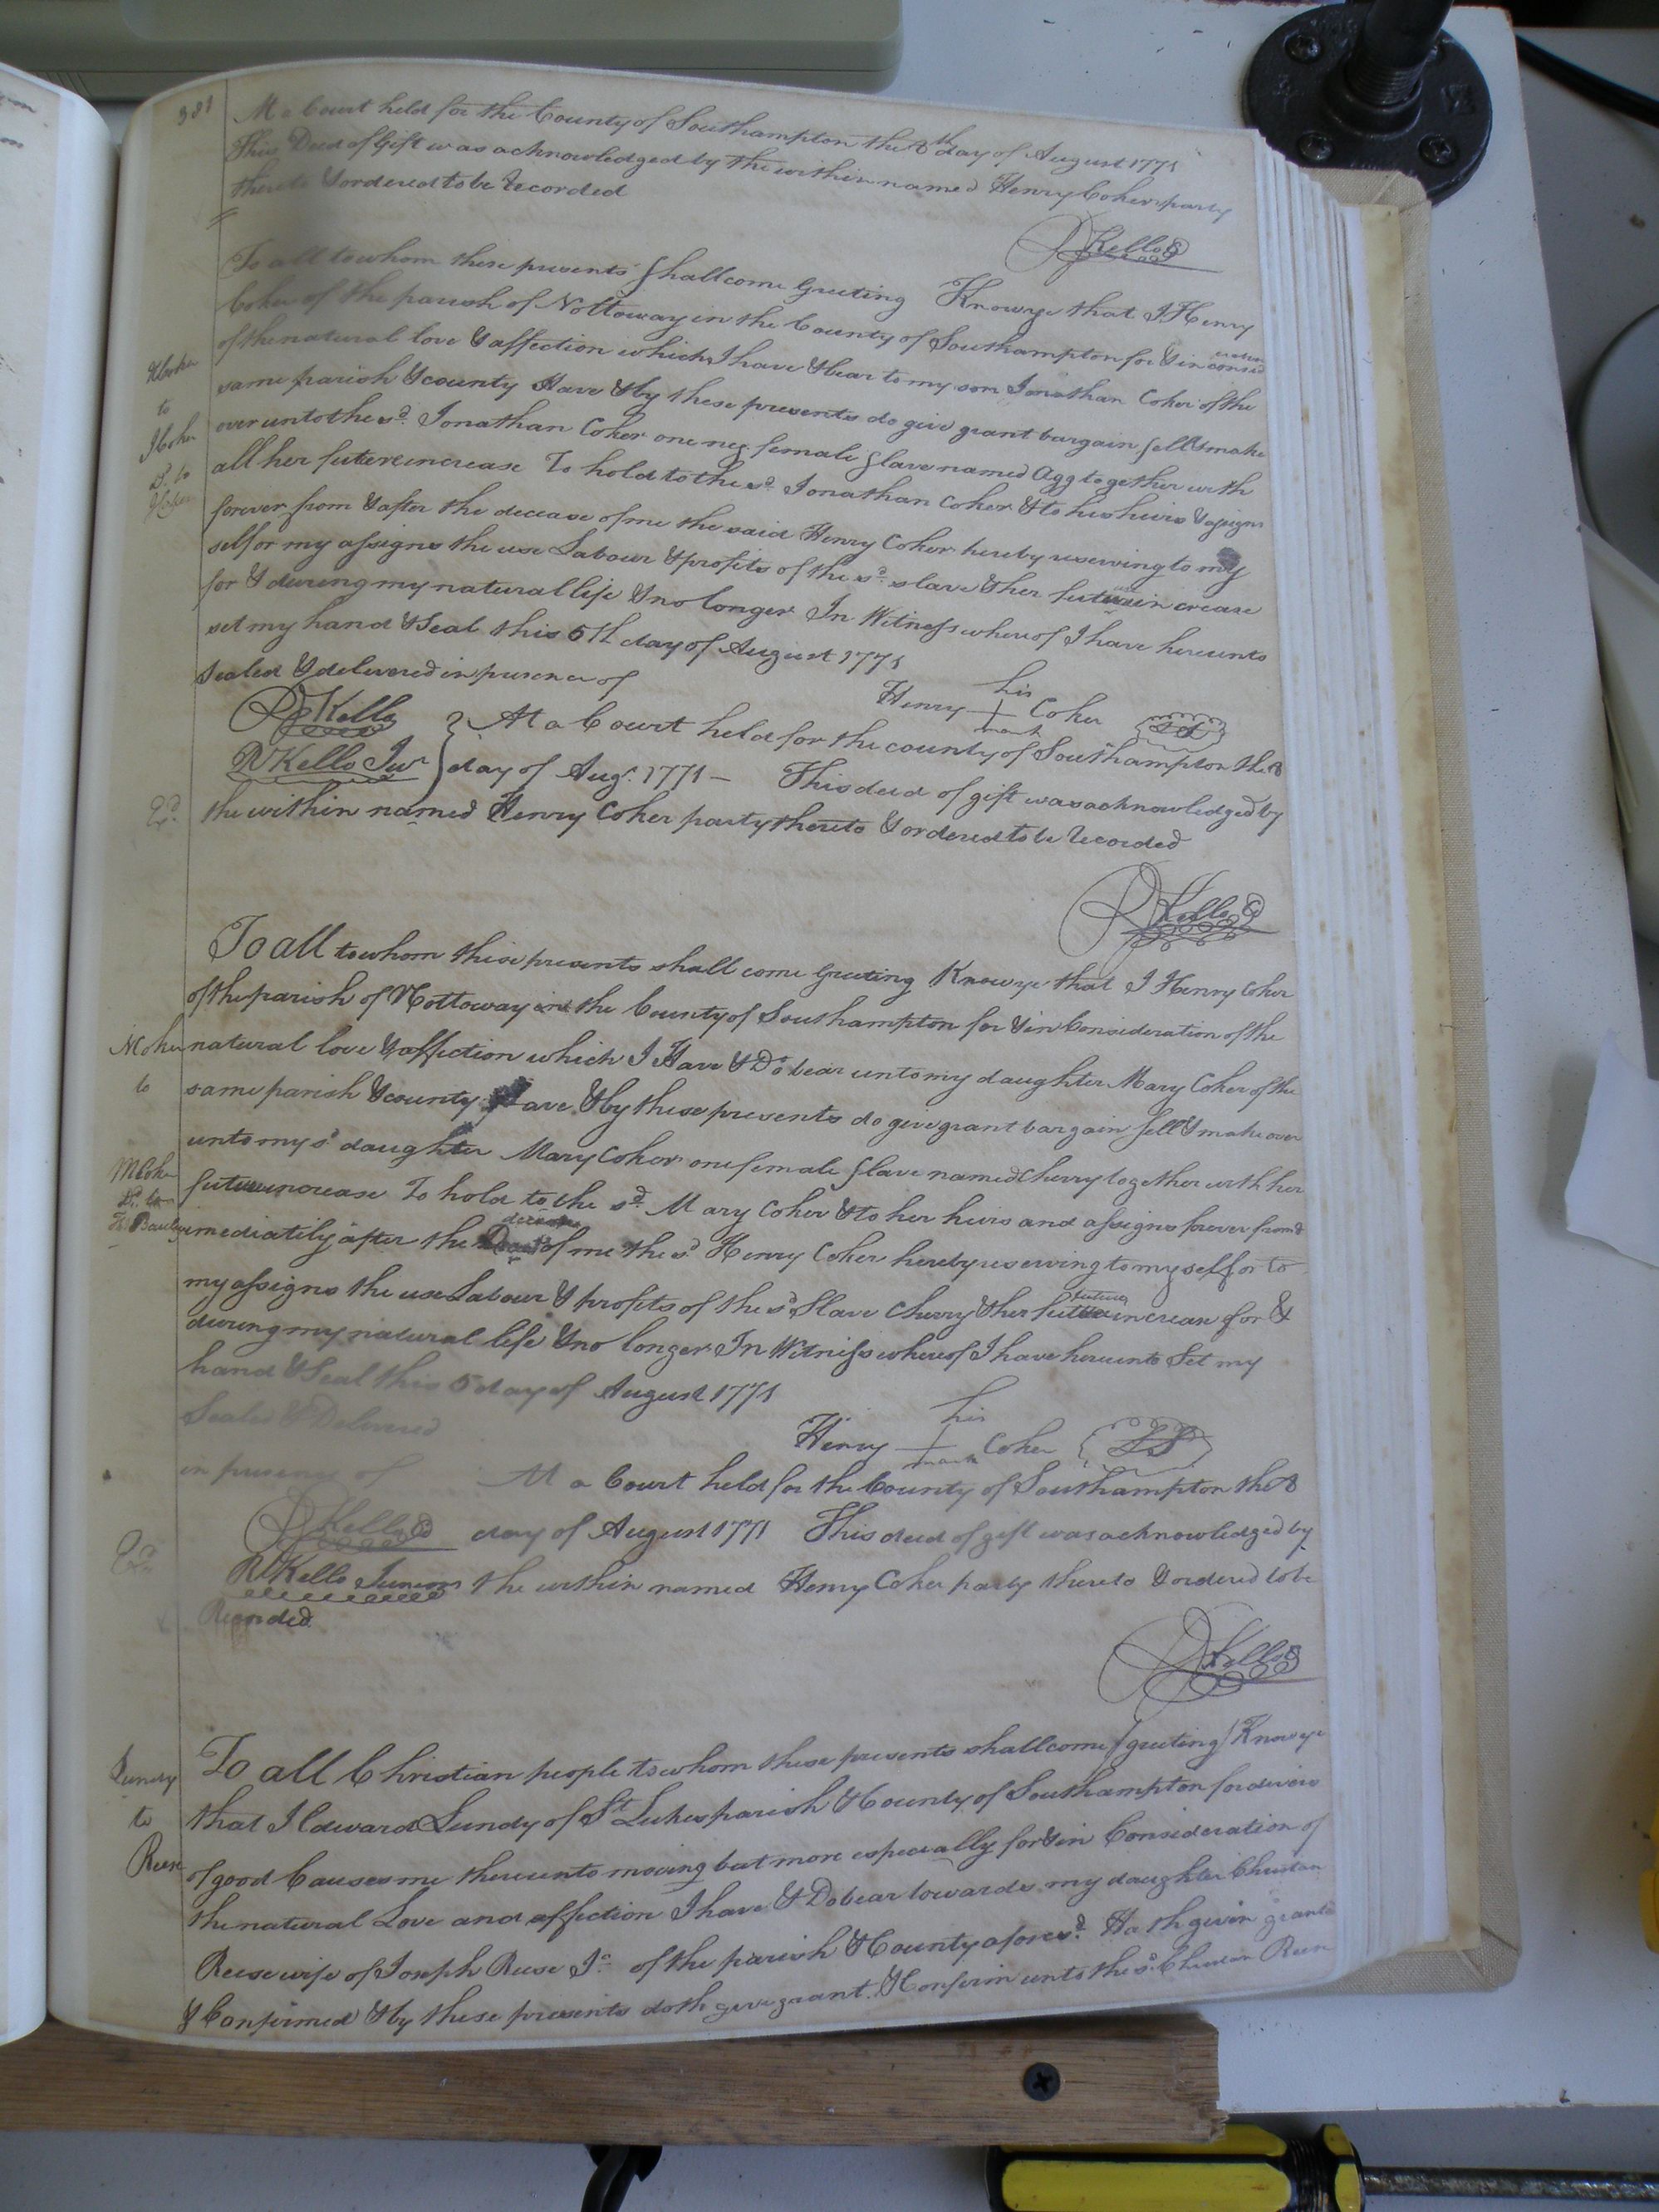 381
At a Court held for the County of Southampton the 8th day of August 1771
This Deed of Gift was acknowledged by the within named Henry Coker party
thereto & ordered to be Recorded
RKello
To all to whom these presents shall come Greeting Know ye that I Henry
Coker of the parish of Nottoway in the County of Southampton for & in consideration
of the natural love & affection which I have & bear to my son Jonathan Coker of the
same parish & county Have & by these presents do give grant bargain sell & make
over unto the sd. Jonathan Coker one neg female slave named Agg together with
all her future increase To hold to the sd. Jonathan Coker & to his heirs & assigns
forever from & after the decease of me the said Henry Coker hereby reserving to my
self or my assigns the use Labour & profits of the sd. slave & her future increase
for & during my natural life & no longer In Witness whereof I have hereunto
set my hand & Seal this 5th day of August 1771
to
JCoker
Sealed & delivered in presence of
his
Henry + Coker LS
mark
RKello
RKello Junr
At a Court held for the county of Southampton the 8
day of Augt. 1771 - This deed of gift was acknowledged by
the within named Henry Coker party thereto & ordered to be Recorded
Ed.
RKello
To all to whom these presents shall come Greeting Know ye that I Henry Coker
of the parish of Nottoway in the County of Southampton for & in Consideration of the
natural love & affection which I Have & Do bear unto my daughter Mary Coker of the
same parish & county Have & by these presents do give grant bargain sell & make over
unto my sd daughter Mary Coker one female slave named Cherry together with her
future increase To hold to the sd. Mary Coker & to her heirs and assigns forever from &
imediatily after the decease of me the sd Henry Coker hereby reserving to my self or to
my assigns the use Labour & profits of the sd Slave Cherry & her future increase for &
during my natural life & no longer In Witness whereof I have hereunto Set my
hand & Seal this 5 day of August 1771
to
MCoker
Sealed & Delivered
his
Henry + Coker LS
mark
in presence of
At a Court held for the County of Southampton the 8
RKello
day of August 1771 This deed of gift was acknowledged by
RKello Junior
the within named Henry Coker party thereto & ordered to be
Recorded.
Ed.
RKello
Lundy
to
Reese
To all Christian people to whom these presents shall come (greeting) Know ye
that I Edward Lundy of St Lukes parish & County of Southampton for divers
of good Causes me thereunto moving but more especially for & in Consideration of
the natural Love and affection I have & Do bear towards my daughter Christian
Reese wife of Joseph Reese Jr of the parish & County aforesd. Hath given granted
& Confirmed & by these presents doth give grant & Confirm unto the sd. Christian Reese